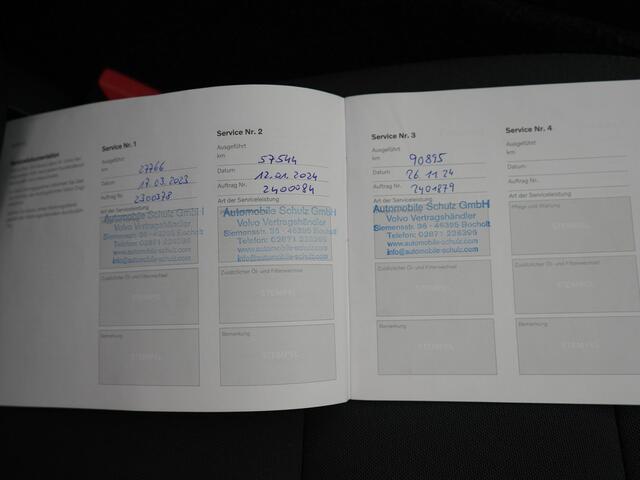 Service Nr. 1
Ausgeführt
km 27766
Datum 17.03.2023
Auftrag Nr. 2300378
Art der Serviceleistung
Automobile Schulz GmbH
Volvo Vertragshändler
Siemensstr. 36 - 46395 Bocholt
Telefon: 02871 226395
www.automobile-schulz.com
info@automobile-schulz.com
Zusätzlicher Öl- und Filterwechsel
STEMPEL
Bemerkung
STEMPEL
Service Nr. 2
Ausgeführt
km 57544
Datum 12.01.2024
Auftrag Nr. 2400084
Art der Serviceleistung
Automobile Schulz GmbH
Volvo Vertragshändler
Siemensstr. 36 - 46395 Bocholt
Telefon: 02871 226395
www.automobile-schulz.com
info@automobile-schulz.com
Zusätzlicher Öl- und Filterwechsel
STEMPEL
Bemerkung
STEMPEL
Service Nr. 3
Ausgeführt
km 90895
Datum 26.11.24
Auftrag Nr. 2401879
Art der Serviceleistung
Automobile Schulz GmbH
Volvo Vertragshändler
Siemensstr. 36 - 46395 Bocholt
Telefon: 02871 226395
www.automobile-schulz.com
info@automobile-schulz.com
Zusätzlicher Öl- und Filterwechsel
STEMPEL
Bemerkung
STEMPEL
Service Nr. 4
Ausgeführt
km
Datum
Auftrag Nr.
Art der Serviceleistung
Pflege und Wartung
STEMPEL
Zusätzlicher Öl- und Filterwechsel
STEMPEL
Bemerkung
STEMPEL